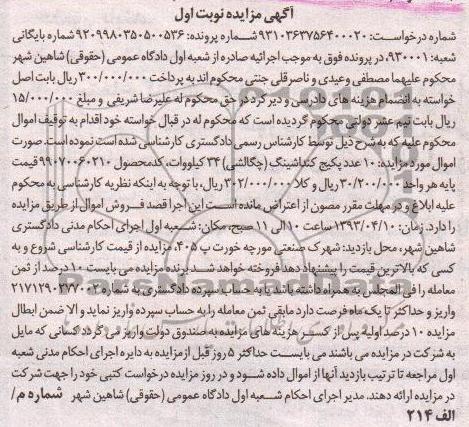 آگهی مزایده نوبت اول
شماره درخواست: ۹۳۱۰۳۶۳۷۵۶۴۰۰۰۲۰ شماره پرونده: ۹۲۰۹۹۸۰۳۵۰۵۰۰۵۳۶ شماره بایگانی
شعبه: ۹۳۰۰۰۱، در پرونده فوق به موجب اجرائیه صادره از شعبه اول دادگاه عمومی (حقوقی) شاهین شهر
محکوم علیهما مصطفی وعیدی و ناصر قلی جنتی محکوم اند به پرداخت ۳۰۰/۰۰۰/۰۰۰ ریال بابت اصل
خواسته به انضمام هزینه های دادرسی و دیرکرد در حق محکوم له علیرضا شریفی و مبلغ ۱۵/۰۰۰/۰۰۰
ریال بابت نیم عشر دولتی محکوم گردیده است که محکوم له در قبال خواسته خود اقدام به توقیف اموال
محکوم علیه که به شرح ذیل توسط کارشناس رسمی دادگستری کارشناسی شده است نموده است. صورت
اموال مورد مزایده: ۱۰ عدد پکیج کنداشینگ (چگالشی) ۳۴ کیلووات، کدمحصول ۹۹۰۷۰۰۶۰۲۱۰ قیمت
پایه هر واحد ۳۰/۲۰۰/۰۰۰ ریال و کلا ۳۰۲/۰۰۰/۰۰۰ ریال، با توجه به اینکه نظریه کارشناسی به محکوم
علیه ابلاغ و در مهلت مقرر مصون از اعتراض مانده است این اجرا قصد فروش اموال از طریق مزایده
را دارد. زمان: ۱۳۹۳/۰۴/۱۰ ساعت ۱۰ الی ۱۱ صبح، مکان: شعبه اول اجرای احکام مدنی دادگستری
شاهین شهر، محل بازدید: شهرک صنعتی مورچه خورت پ ۴۰۵، مزایده از قیمت کارشناسی شروع و به
کسی که بالاترین قیمت را پیشنهاد دهد فروخته خواهد شد. برنده مزایده می بایست ۱۰ درصد از ثمن
معامله را فی المجلس به همراه داشته باشد یا به حساب سپرده دادگستری به شماره ۲۱۷۱۲۹۰۲۷۷۰۰۲
واریز و حداکثر تا یک ماه فرصت دارد مابقی ثمن معامله را به حساب سپرده واریز نماید و الا ضمن ابطال
مزایده ۱۰ درصد اولیه پس از کسر هزینه های مزایده به صندوق دولت واریز می گردد کسانی که مایل
به شرکت در مزایده می باشند می بایست حداکثر ۵ روز قبل از مزایده به دایره اجرای احکام مدنی شعبه
اول مراجعه تا ترتیب بازدید آنها از اموال داده شود و در روز مزایده درخواست کتبی خود را جهت شرکت
در مزایده ارائه دهند. مدیر اجرای احکام شعبه اول دادگاه عمومی (حقوقی) شاهین شهر شماره م/
الف ۲۱۴